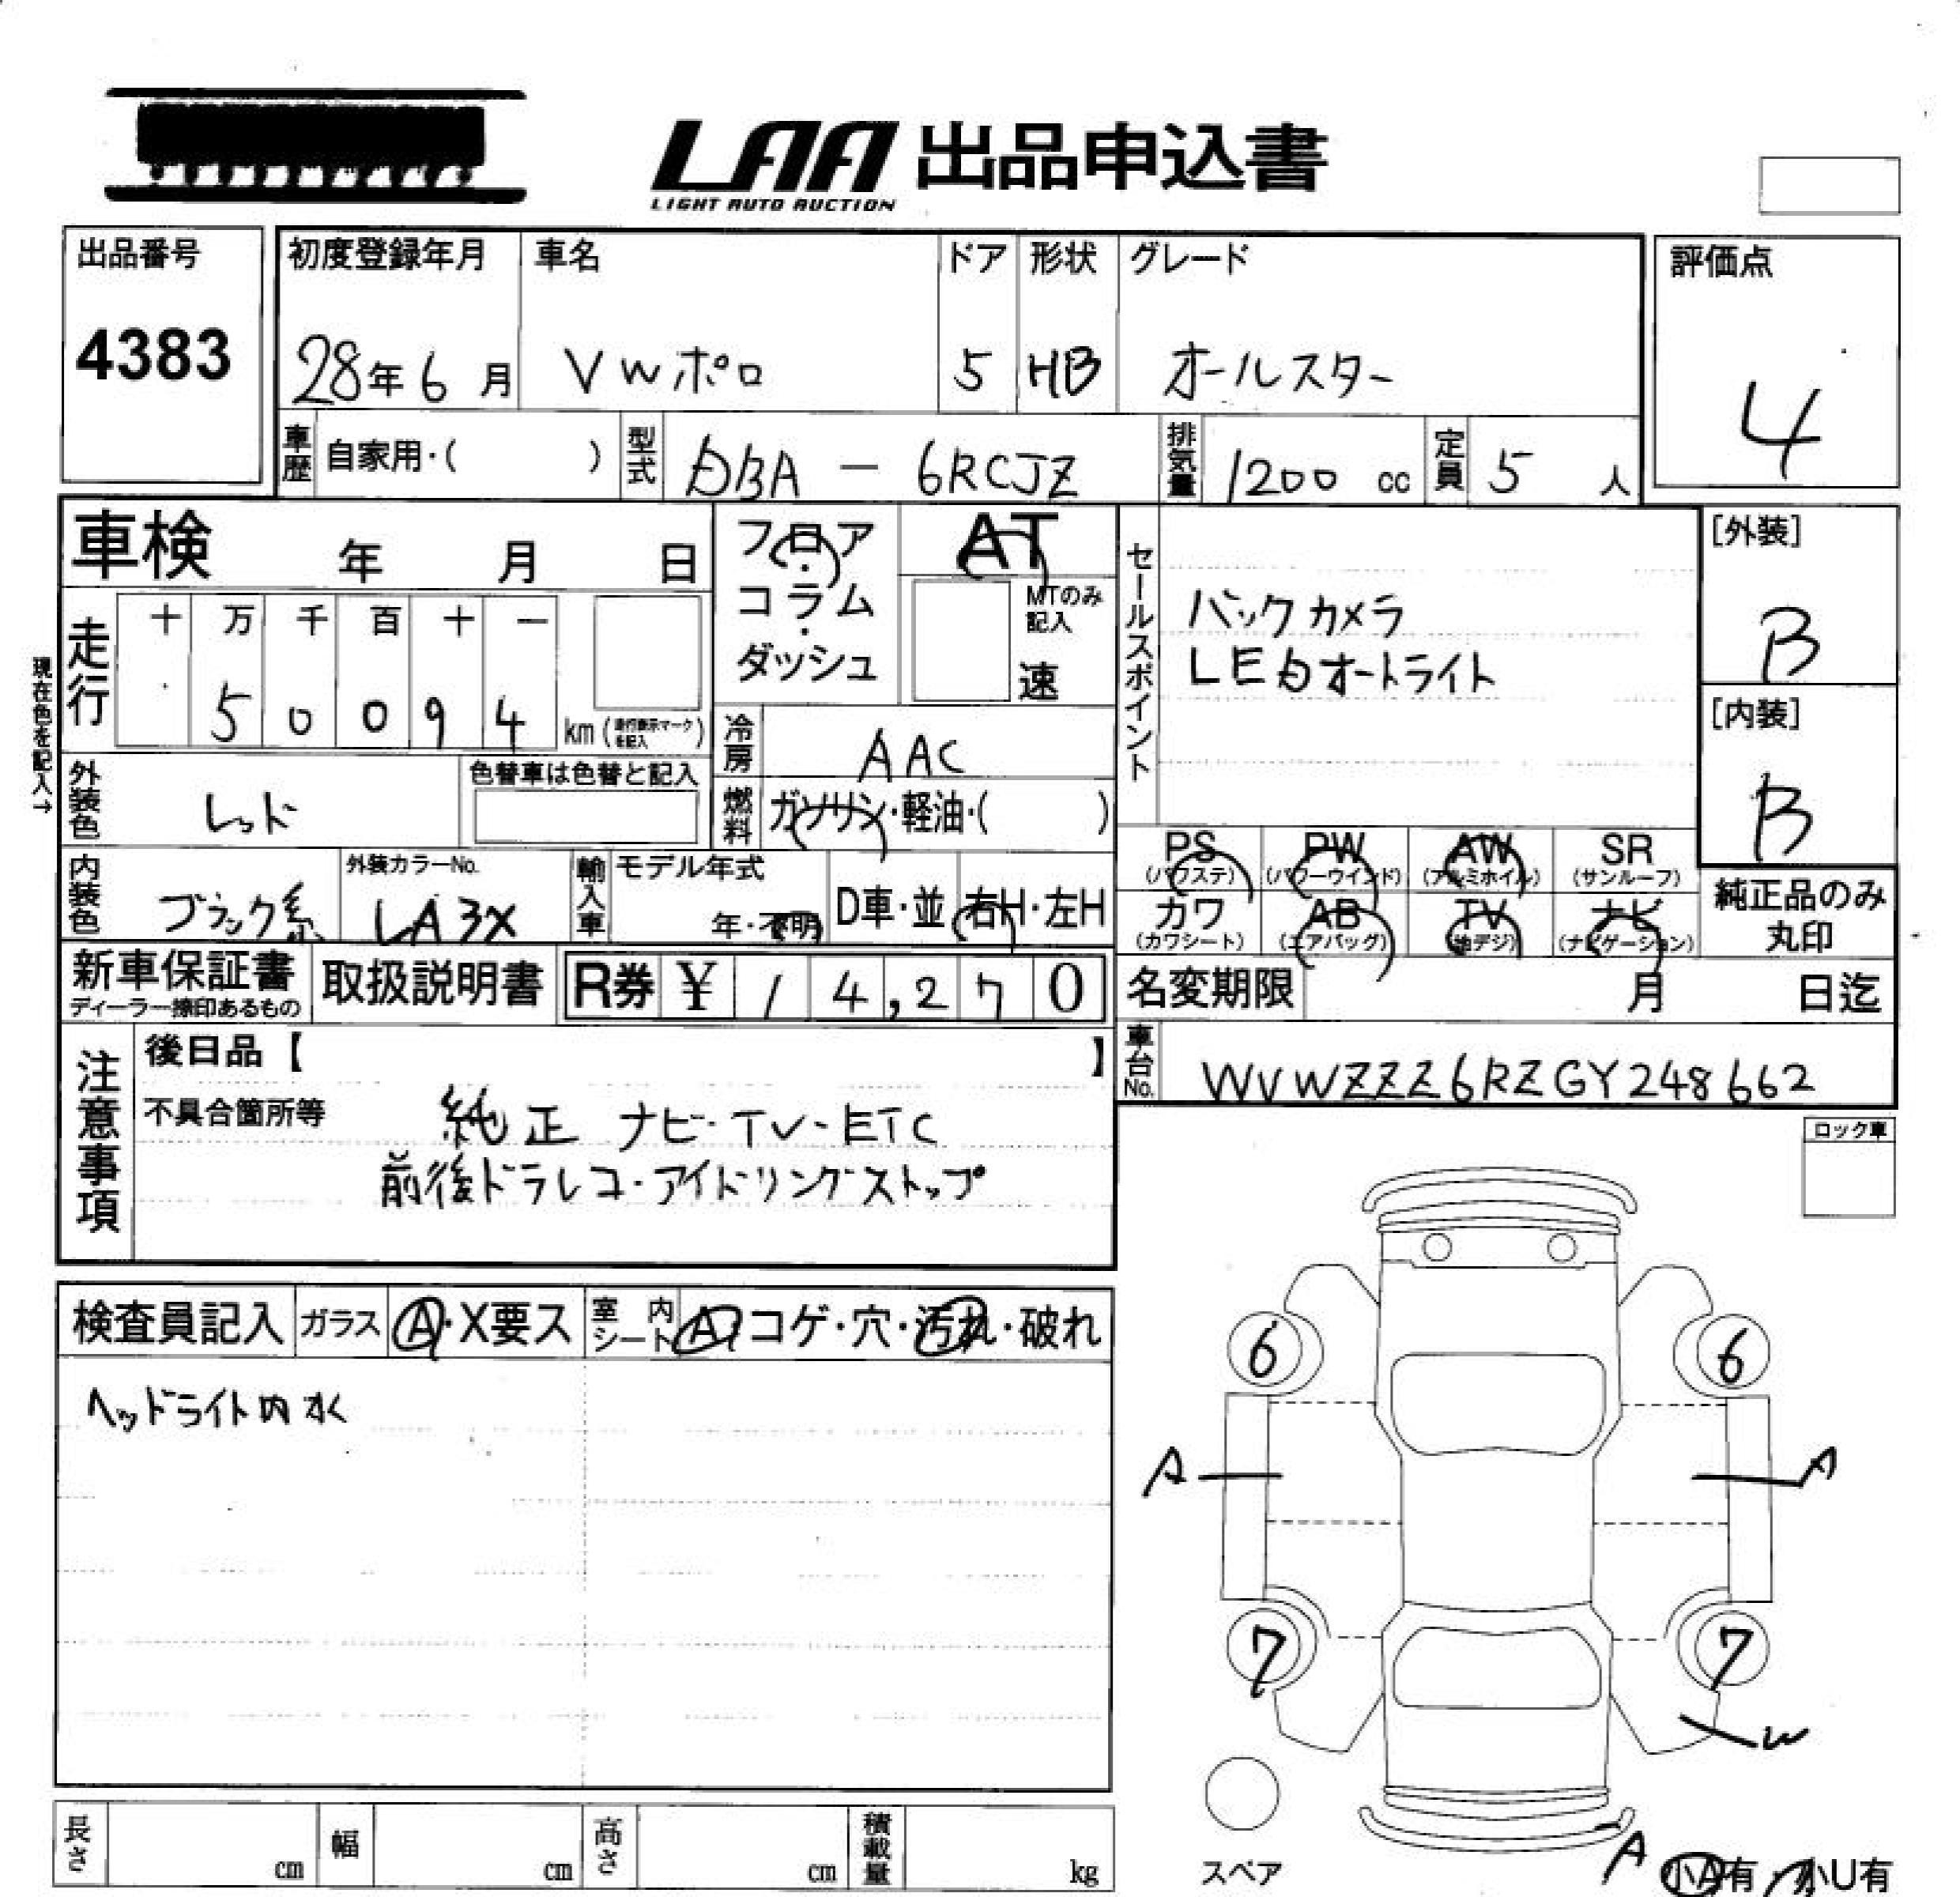 LAA 出品申込書
LIGHT AUTO AUCTION
出品番号
4383
初度登録年月
28年6月
車名
VWポロ
ドア
5
形状
HB
グレード
オールスター
評価点
4
車歴 自家用・( )
型式 DBA - 6RCJZ
排気量 1200 cc
定員 5 人
車検 年 月 日
フロア・コラム・ダッシュ
AT
MTのみ記入
速
セールスポイント
バックカメラ
LEDオートライト
[外装]
B
[内装]
B
現在色を記入→
走行
十 万 千 百 十 一
5 0 0 9 4 km (走行表示マークを記入)
冷房 AAC
外装色 レッド
色替車は色替と記入
燃料 ガソリン・軽油・( )
PS (パワステ)
PW (パワーウインド)
AW (アルミホイル)
SR (サンルーフ)
内装色 ブラック系
外装カラーNo. LA3X
輸入車 モデル年式
年・不明
D車・並
右H・左H
カワ (カワシート)
AB (エアバッグ)
TV (地デジ)
ナビ (ナビゲーション)
純正品のみ
丸印
新車保証書
ディーラー捺印あるもの
取扱説明書
R券 ¥ 14,270
名変期限 月 日迄
車台No. WVWZZZ6RZGY248662
注意事項
後日品【 】
不具合箇所等
純正 ナビ・TV・ETC
前後ドラレコ・アイドリングストップ
ロック車
検査員記入 ガラス A・X要ス
室内シート A・コゲ・穴・汚れ・破れ
ヘッドライト内水
6 6
A A
7 7
W
A
スペア
小A有・小U有
長さ cm 幅 cm 高さ cm 積載量 kg